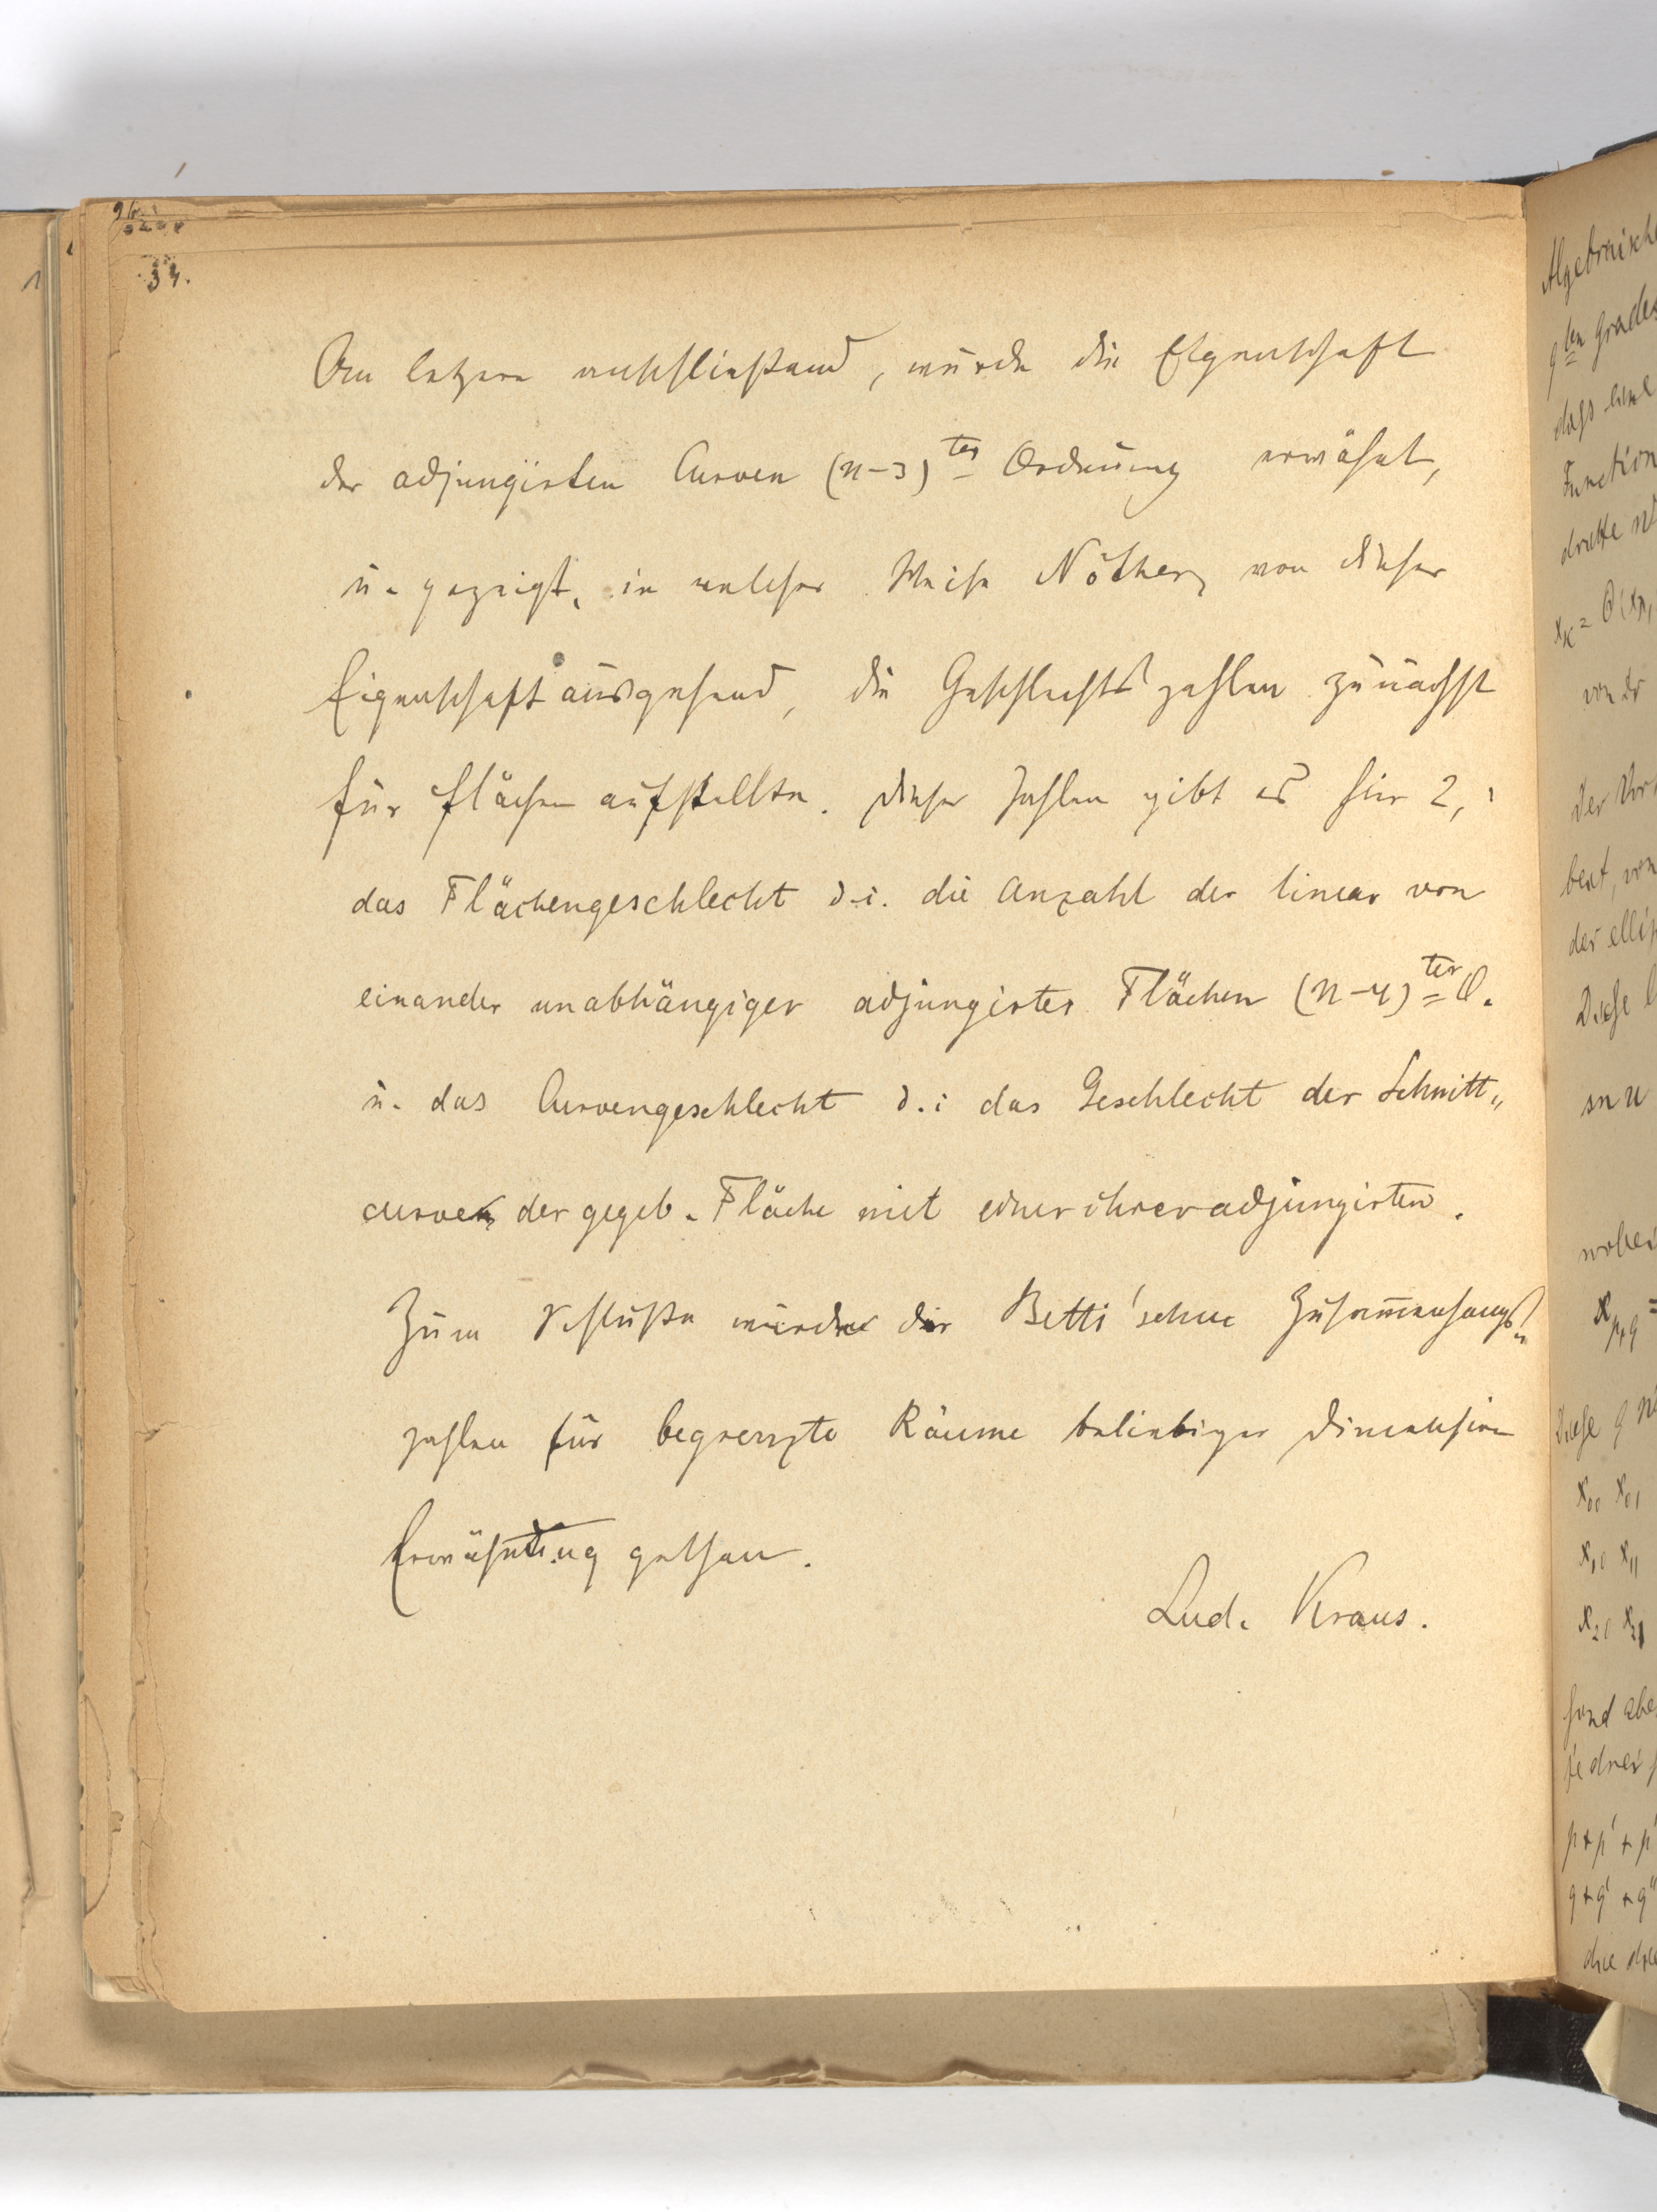 34.
An letztere anschließend, wurde die Eigenschaft
der adjungirten Curven (n-3)ter Ordnung erwähnt,
u. gezeigt, in welcher Weise Nöther, von dieser
Eigenschaft ausgehend, die Geschlechtszahlen zunächst
für Flächen aufstellte. Dieser Zahlen gibt es hier 2,
das Flächengeschlecht d.i. die Anzahl der linear von
einander unabhängiger adjungirter Flächen (n-4)ter O.
u. das Curvengeschlecht d.i das Geschlecht der Schnitt„
curven der gegeb. Fläche mit einer ihrer adjungirten.
Zum Schluße wurde der Betti'schen Zusam̅enhangs„
zahlen für begrenzte Räume beliebiger Dimension
Erwähnung gethan.
Lud. Kraus.
Algebraische
qten Grades
dass eine
Function
dritte
von dr
der
der
Diese
sn u
wobei
Diese q
x00 x01
x10 x11
x20 x21
sind abe
je drei
p+p'+p'
q+q'+q"
die